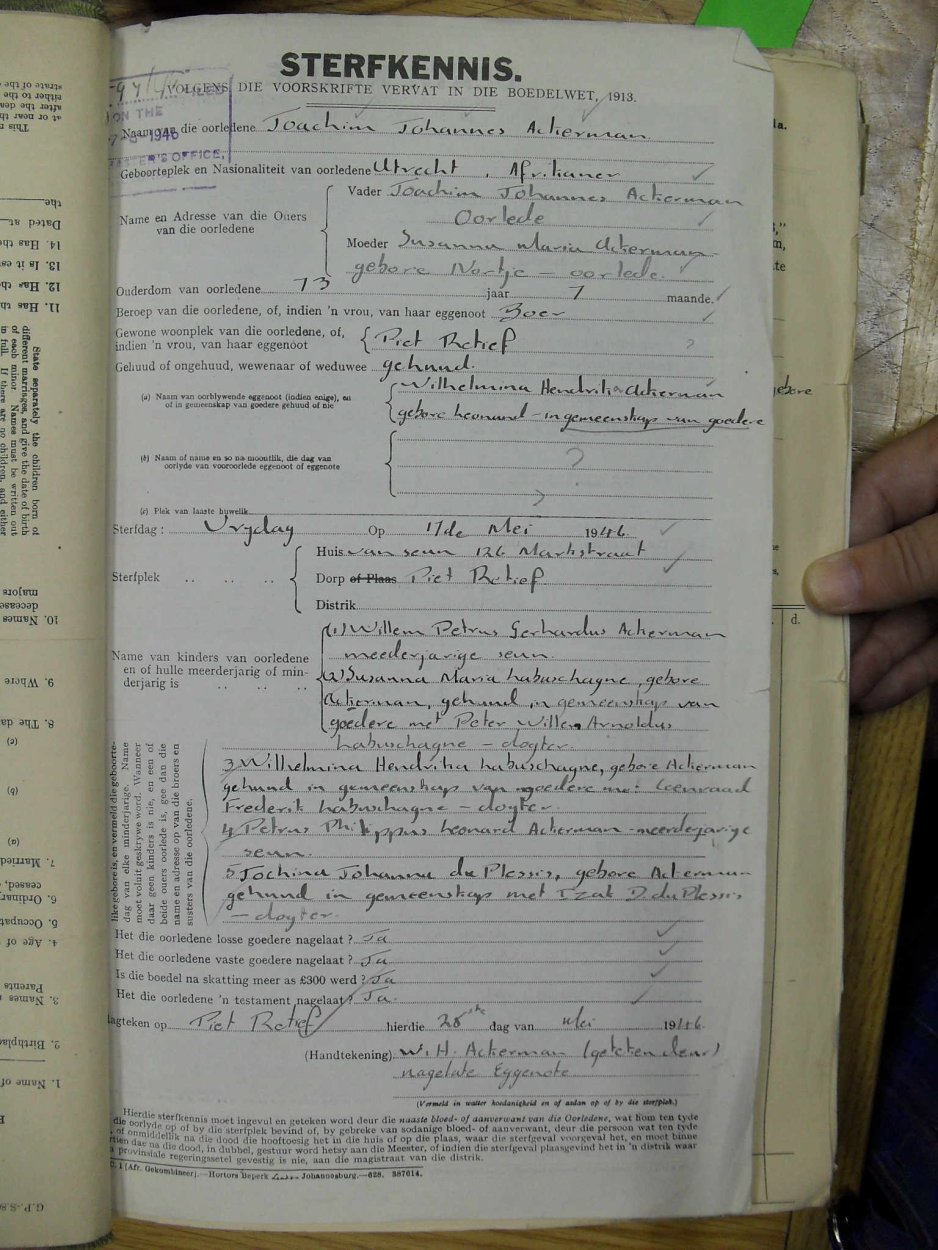 STERFKENNIS.
VOLGENS DIE VOORSKRIFTE VERVAT IN DIE BOEDELWET, 1913.
ON THE
1946
MASTER'S OFFICE,
Naam van die oorledene Joachim Johannes Ackerman
Geboorteplek en Nasionaliteit van oorledene Utrecht, Afrikaner
Name en Adresse van die Ouers van die oorledene
Vader Joachim Johannes Ackerman
Oorlede
Moeder Susanna Maria Ackerman
gebore Nortje – oorlede.
Ouderdom van oorledene 73 jaar 7 maande.
Beroep van die oorledene, of, indien 'n vrou, van haar eggenoot Boer
Gewone woonplek van die oorledene, of, indien 'n vrou, van haar eggenoot { Piet Retief ?
Gehuud of ongehuud, wewenaar of weduwee gehuud.
(a) Naam van oorblywende eggenoot (indien enige), en of in gemeenskap van goedere gehuud of nie
Wilhelmina Hendrika Ackerman
gebore Leonard – in gemeenskap van goedere
(b) Naam of name en so na moontlik, die dag van oorlyde van vooroorlede eggenoot of eggenote
?
(c) Plek van laaste huwelik
Sterfdag : Vrydag Op 17de Mei 1946
Sterfplek
Huis van seun 126 Markstraat
Dorp of Plaas Piet Retief
Distrik
Name van kinders van oorledene en of hulle meerderjarig of minderjarig is
(1) Willem Petrus Gerhardus Ackerman
meederjarige seun.
(2) Susanna Maria Labuschagne, gebore
Ackerman, gehuud in gemeenskap van
goedere met Peter Willem Arnoldus
Labuschagne – dogter.
like gebore is, en vermeld die geboorte-
dag van elke minderjarige. Name
moet voluit geskrywe word. Wanneer
daar geen kinders is nie, en een of
beide ouers oorlede is, gee dan die
name en adresse op van die broers en
susters van die oorledene.
3. Wilhelmina Hendrika Labuschagne, gebore Ackerman
gehuud in gemeenskap van goedere met Coenraad
Frederik Labuschagne – dogter.
4. Petrus Philippus Leonard Ackerman – meerderjarige
seun.
5. Jochina Johanna du Plessis, gebore Ackerman
gehuud in gemeenskap met Izak D. du Plessis
– dogter.
Het die oorledene losse goedere nagelaat ? Ja
Het die oorledene vaste goedere nagelaat ? Ja
Is die boedel na skatting meer as £300 werd ? Ja
Het die oorledene 'n testament nagelaat? Ja.
agteken op Piet Retief hierdie 28ste dag van Mei 1946.
(Handtekening) W. H. Ackerman (geteken deur)
nagelate Eggenote
(Vermeld in watter hoedanigheid en of aldan op of by die sterfplek.)
Hierdie sterfkennis moet ingevul en geteken word deur die naaste bloed- of aanverwant van die Oorledene, wat hom ten tyde
die oorlyde op of by die sterfplek bevind of, by gebreke van sodanige bloed- of aanverwant, deur die persoon wat ten tyde
of onmiddellik na die dood die hooftoesig het in die huis of op die plaas, waar die sterfgeval voorgeval het, en moet binne
rtien dae na die dood, in dubbel, gestuur word hetsy aan die Meester, of indien die sterfgeval plaasgevind het in 'n distrik waar
a provinsiale regeringssetel gevestig is nie, aan die magistraat van die distrik.
C. 1 (Afr. Gekombineer).—Hortors Beperk Johannesburg.—628. 387014.